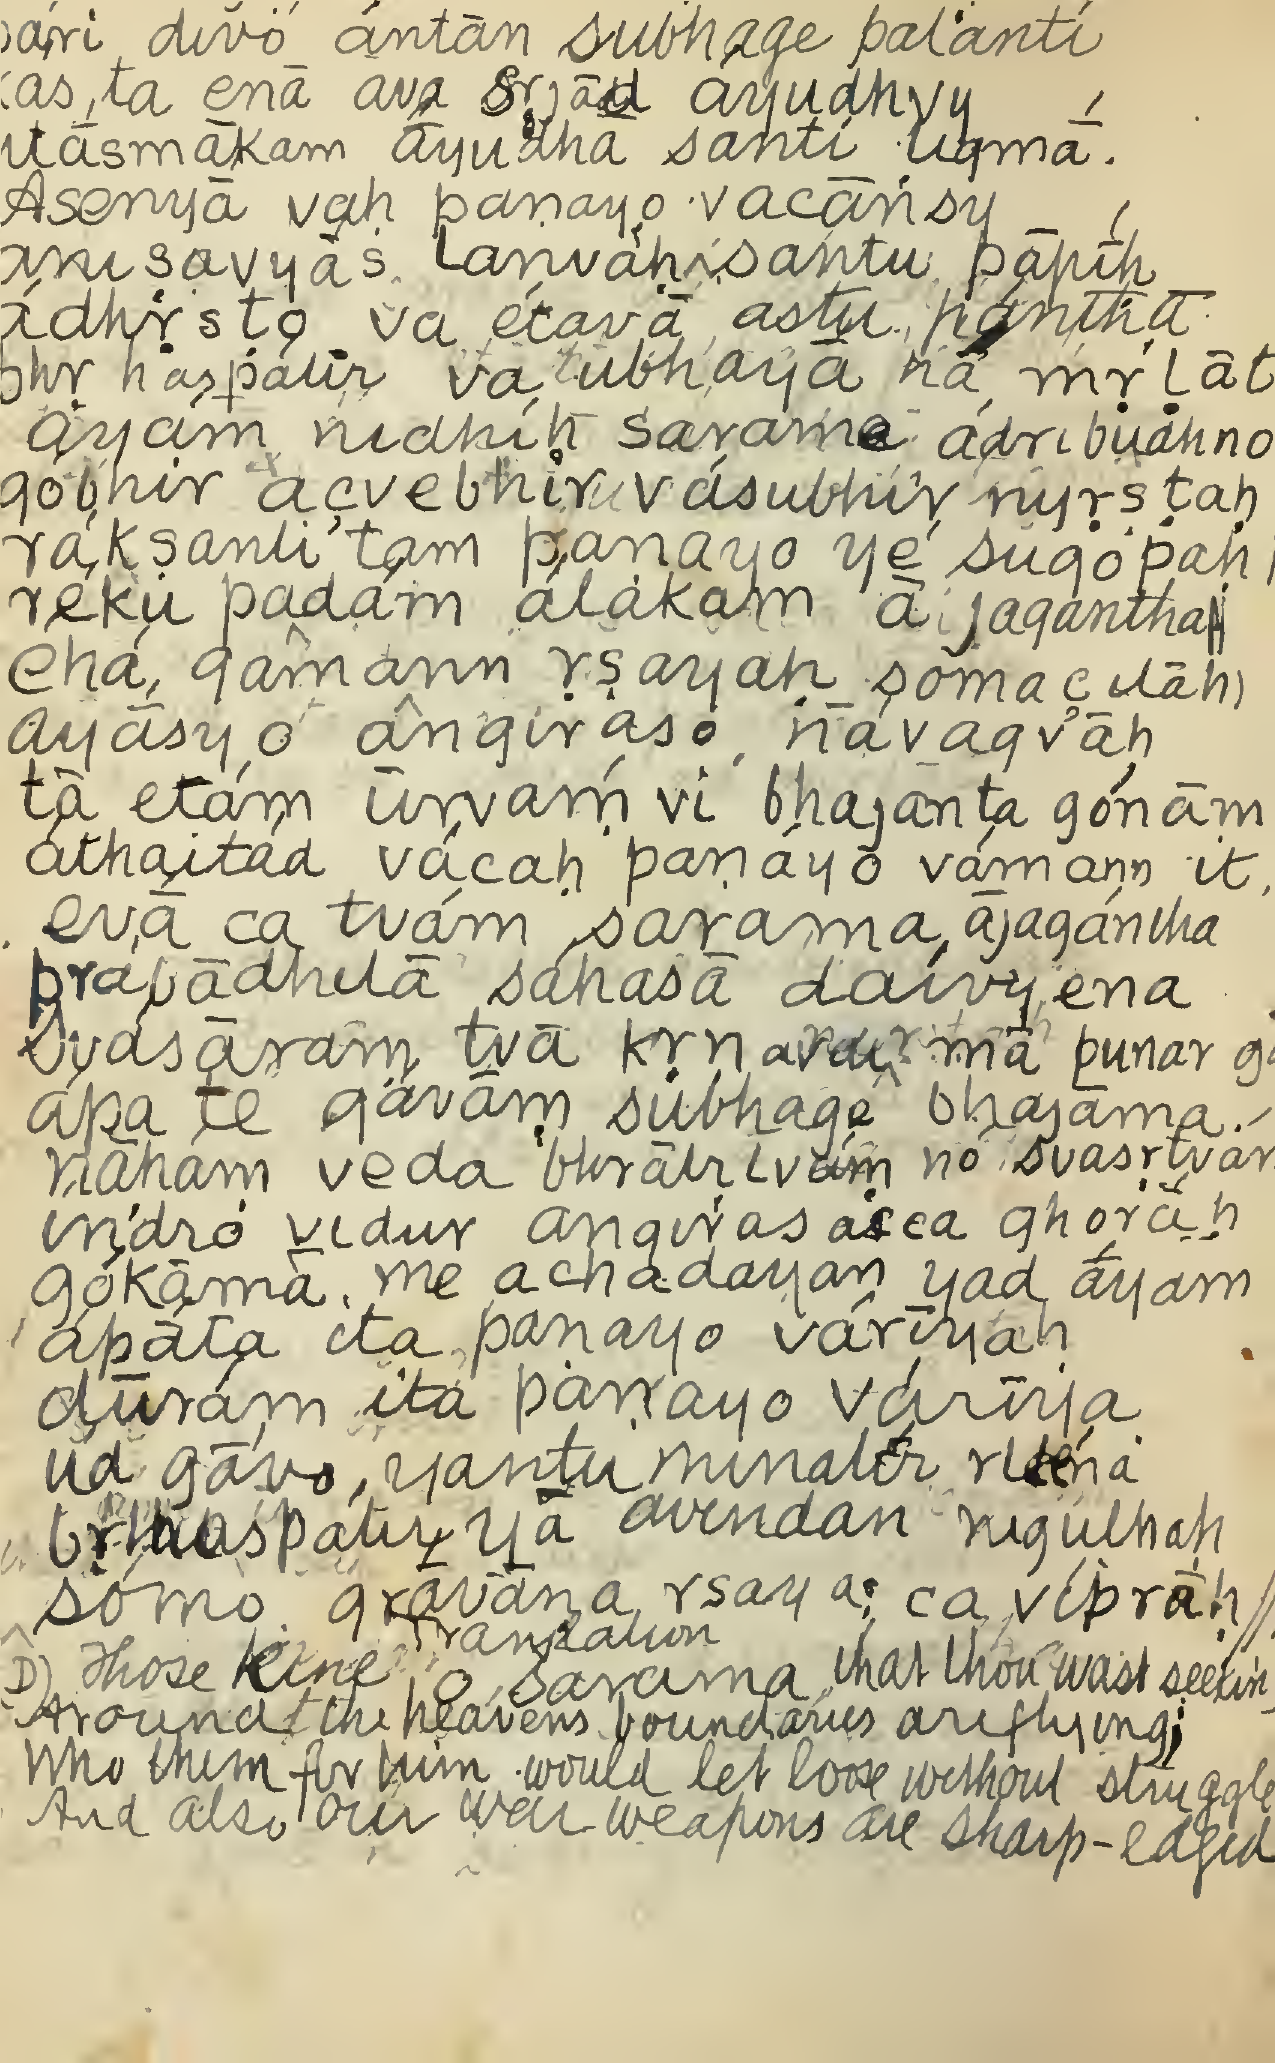 pári divó ántān subhage patantī
kas ta enā ava srjād ayudhvy
utāsmākam āyudhā santi tigmā.
Asenyā vaḥ paṇayo vacāṅsy
aniṣavyās tanvaḥ santu pāpīḥ
ádhṛsto va étavā astu pánthā
bhṛhaspátir va ubhayā ná mṛlāt
áyám nidhíḥ sarame ádribudhno
góbhir açvebhir vásubhir nyṛṣtaḥ
rákṣanti tam paṇayo yé sugopāḥ
réku padám álakam ā jagantha
ehá gâmann ṛṣayaḥ sómaçitāḥ
ayāsyo ângiraso návagvāḥ
tá etám ūrvaṁ vi bhajanta gónām
áthaitád vácaḥ paṇáyō vámann it.
evā ca tvám sarama ājagántha
prabādhitā sáhasā daívyena
Svásāram tvā kṛṇavai mā punar gā
ápa te gávām subhage bhajāma.
nāham veda bhrātṛtvám nó svasṛtvám
índro vidur angirasaçca ghorāḥ
gókāmā me achadayan yad áyam
ápāta ita paṇayo várīyaḥ
dūrám ita paṇayo várīya
úd gávo yantu minatīr ṛténa
bṛhaspatir yā avindan nigulhaḥ
sómo grāvāṇa ṛsayaç ca víprāḥ //
Translation
D) Those kine o Sarama that thou wast seekin
Around the heavens boundaries are flying;
Who them for him would let loose without struggle
And also our war weapons are sharp-edged